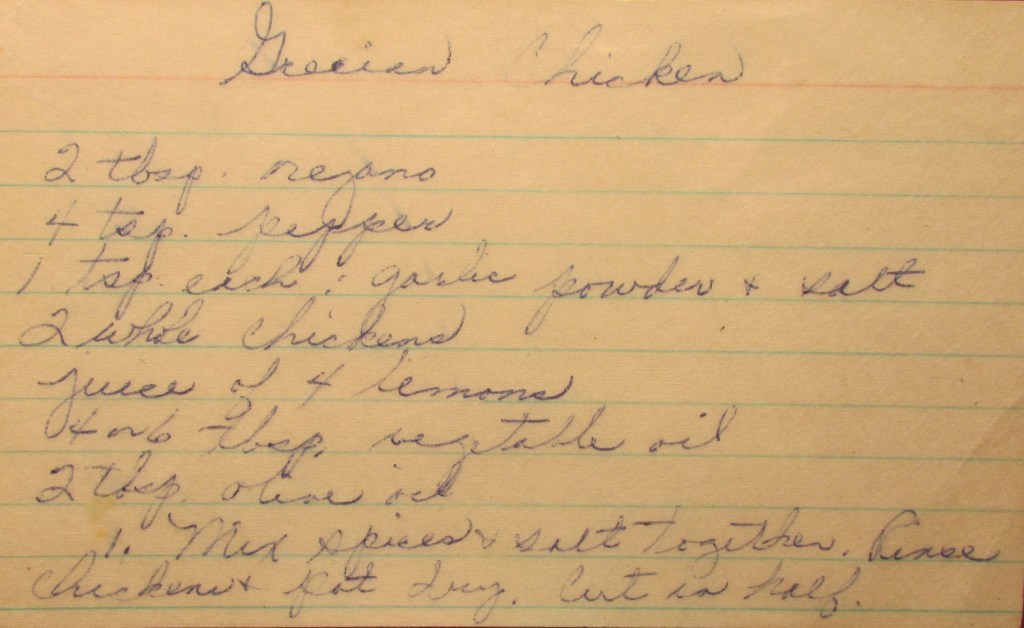 Grecian Chicken
2 tbsp. oregano
4 tsp. pepper
1 tsp. each: garlic powder + salt
2 whole chickens
juice of 4 lemons
4 or 6 Tbsp. vegetable oil
2 tbsp. olive oil
1. Mix spices + salt together. Rinse
chickens + pat dry. Cut in half.